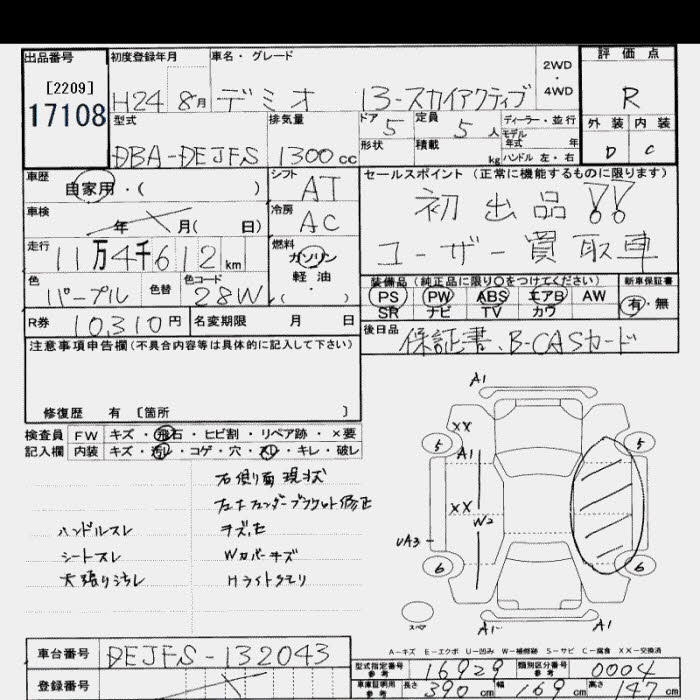 出品番号 初度登録年月 車名・グレード 評価点
[2209] 2WD・4WD
17108 H24 8月 デミオ 13-スカイアクティブ R
型式 排気量 ドア 5 定員 5人 ディーラー・並行 外装 内装
モデル年式 年
DBA-DEJFS 1300cc 形状 積載 kg ハンドル 左・右 D C
車歴 シフト セールスポイント (正常に機能するものに限ります)
自家用・( ) AT 初出品!!
車検 冷房
年 月( 日) AC ユーザー買取車
走行 燃料
11万4千612km ガソリン
軽・油
( )
装備品 (純正品に限り○をつけてください) 新車保証書
色 色替 色コード PS PW ABS エアB AW 有・無
パープル 28W SR ナビ TV カワ
R券 10,310円 名変期限 月 日 後日品 保証書、B-CASカード
注意事項申告欄(不具合内容等は具体的に記入して下さい)
修復歴 有 [箇所 ]
検査員 FW キズ・飛石・ヒビ割・リペア跡・×要
記入欄 内装 キズ・汚レ・コゲ・穴・スレ・キレ・破レ
右側面現状
ハンドルスレ
シートスレ Wカバーキズ
天張り汚レ Hライトクモリ
A1
XX
5 5
A1
XX
W2
UA3
6 6
スペア
A1 A1
A-キズ E-エクボ U-凹み W-補修跡 S-サビ C-腐食 XX-交換済
車台番号 DEJFS-132043
型式指定番号 参考 16929 類別区分番号 参考 0004
登録番号
車庫証明用 参考 長さ 390cm 幅 169cm 高さ 147cm